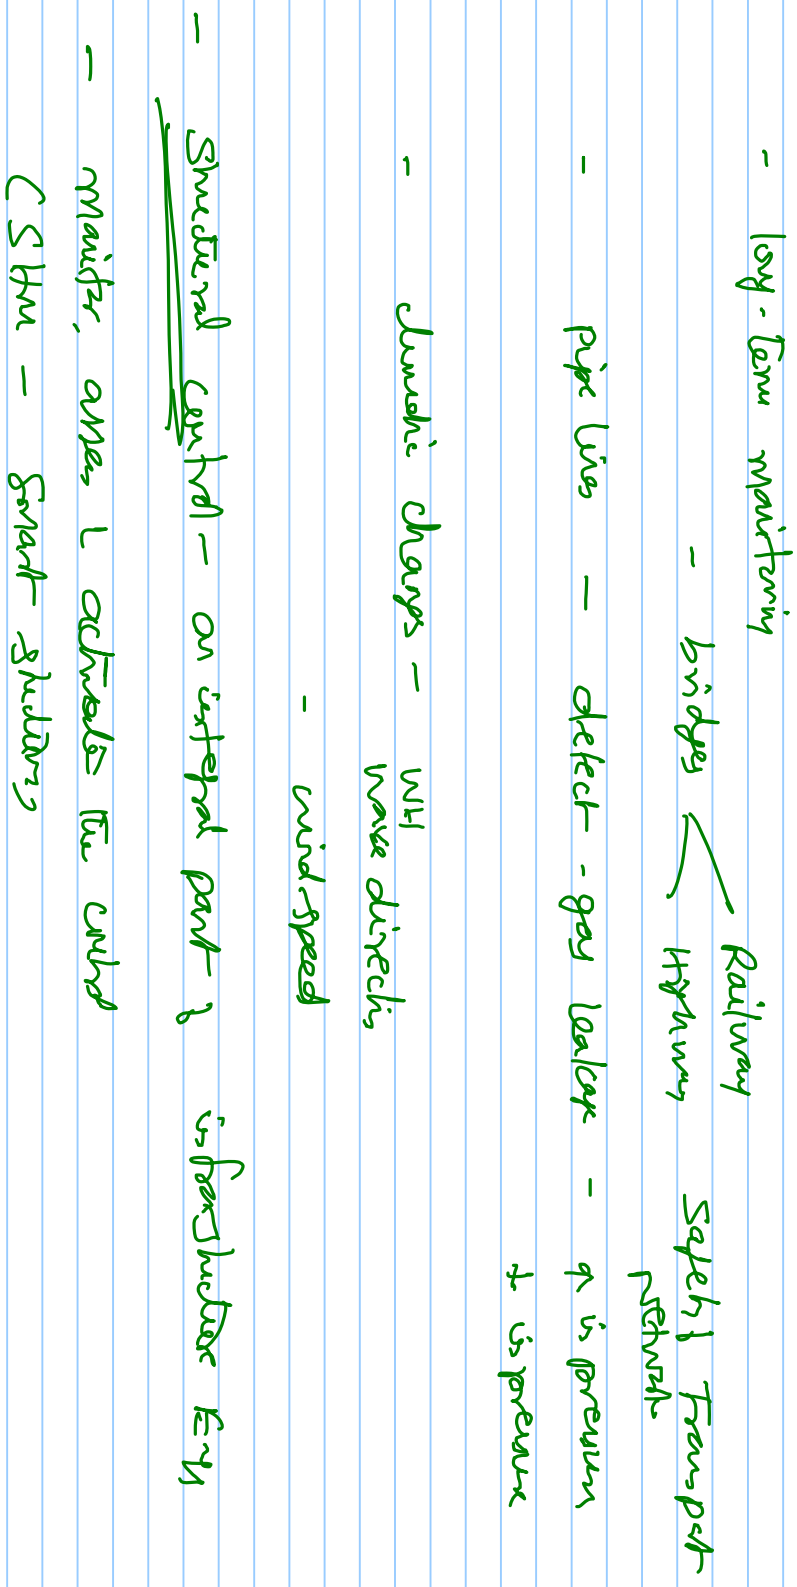 - long-term monitoring
- bridges < Railway
Highway
Safety of Transport
network
- pipe lines - detect - gas leakage - ↑ in pressure
↓ in pressure
- climatic changes - WH
wave direction
- wind speed
- Structural control - an integral part of infrastructure Engg
- monitor, assess & activate the control
(SHM - Smart structures